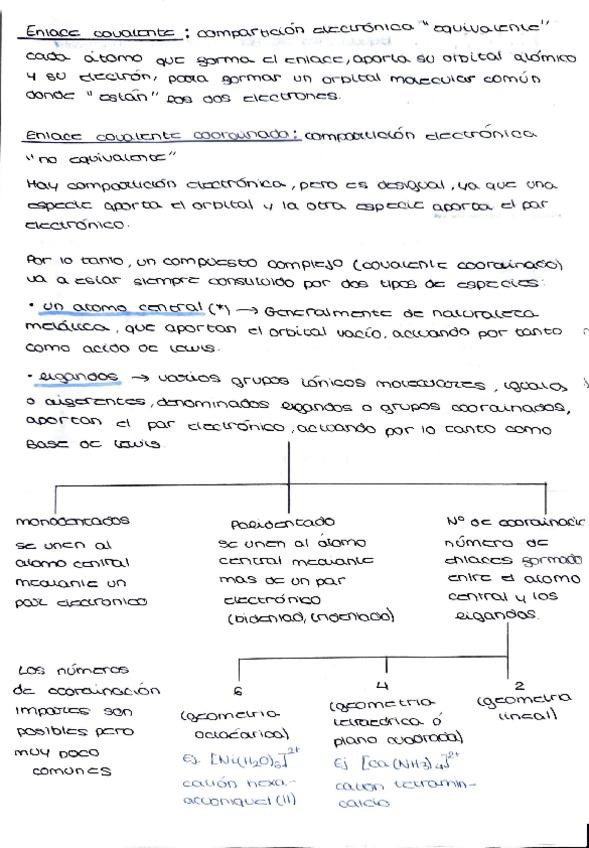 Enlace covalente: compartición electrónica "equivalente"
cada átomo que forma el enlace, aporta su orbital atómico
y su electrón, para formar un orbital molecular común
donde "están" los dos electrones.
Enlace covalente coordinado: compartición electrónica
"no equivalente"
Hay compartición electrónica, pero es desigual, ya que una
especie aporta el orbital y la otra especie aporta el par
electrónico.
Por lo tanto, un compuesto complejo (covalente coordinado)
va a estar siempre constituido por dos tipos de especies:
• un átomo central (*) → Generalmente de naturaleza
metálica, que aportan el orbital vacío, actuando por tanto
como acido de Lewis.
• ligandos → varios grupos iónicos moleculares, iguales
o diferentes, denominados ligandos o grupos coordinados,
aportan el par electrónico, actuando por lo tanto como
Base de Lewis
monodentados
se unen al
atomo central
mediante un
par electronico
Polidentado
se unen al átomo
central mediante
mas de un par
electrónico
(bidentad, tridentado)
Nº de coordinació
número de
enlaces formado
entre el atomo
central y los
ligandos.
Los números
de coordinación
impares son
posibles pero
muy poco
comunes
6
(geometria
octaédrica)
Ej. [Ni(H₂O)₆]²⁺
catión hexa-
acuoniquel (II)
4
(geometria
tetraédrica ó
plano cuadrada)
Ej [Ca(NH₃)₄]²⁺
cation tetramin-
calcio
2
(geometria
lineal)